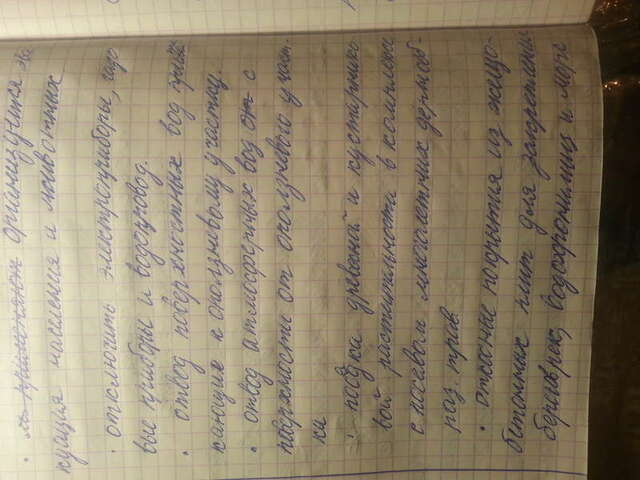 организуется эва
куация населения и животных
• отключить электроприборы, газо
вые приборы и водопровод.
• отвод поверхностных вод
кающие к оползневому участку.
• отвод атмосферных вод от с
поверхности от оползневого участ
ка
• посадка древесной и кустарнико
вой растительности в комплексе
с посевом многолетних дернооб-
раз. трав.
• откосные покрытия из желез
бетонных плит для закрепления
берегов рек, водохранилищ и море